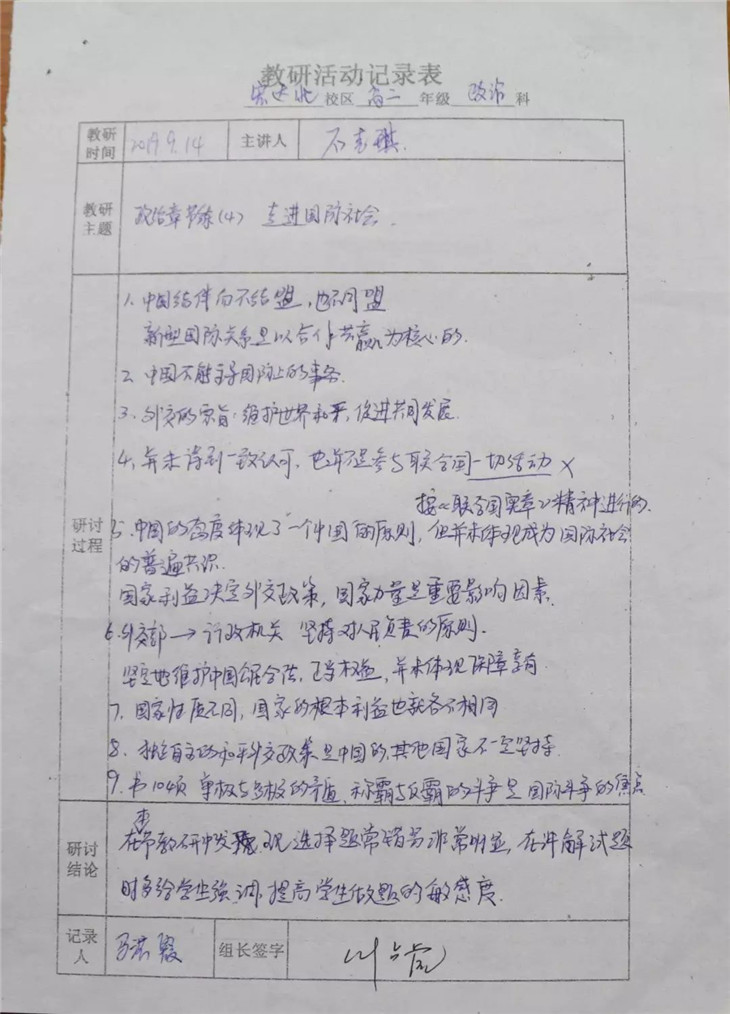 教研活动记录表
宏达北 校区 高二 年级 政治 科
教研时间 2019 9.14 主讲人
教研主题 政治章节练(4) 走进国际社会.
研讨过程
1. 中国结伴而不结盟,也不同盟
新型国际关系是以合作共赢为核心的.
2. 中国不能主导国际上的事务.
3. 外交的宗旨:维护世界和平,促进共同发展.
4. 并未得到一致认可,也并不是参与联合国一切活动 ×
按《联合国宪章》精神进行的.
5. 中国的态度体现了一个中国的原则,但并未体现成为国际社会
的普遍共识.
国家利益决定外交政策,国家力量是重要影响因素.
6. 外交部→行政机关 坚持对人民负责的原则.
坚定地维护中国公民合法、正当权益,并未体现保障享有
7. 国家性质不同,国家的根本利益也就各不相同
8. 独立自主的和平外交政策是中国的,其他国家不一定坚持.
9. 书104页 单极与多极的矛盾,称霸与反霸的斗争是国际斗争的焦点
研讨结论
在本节教研中发现选择题常错易非常明显,在讲解试题
时多给学生强调,提高学生做题的敏感度.
记录人 组长签字